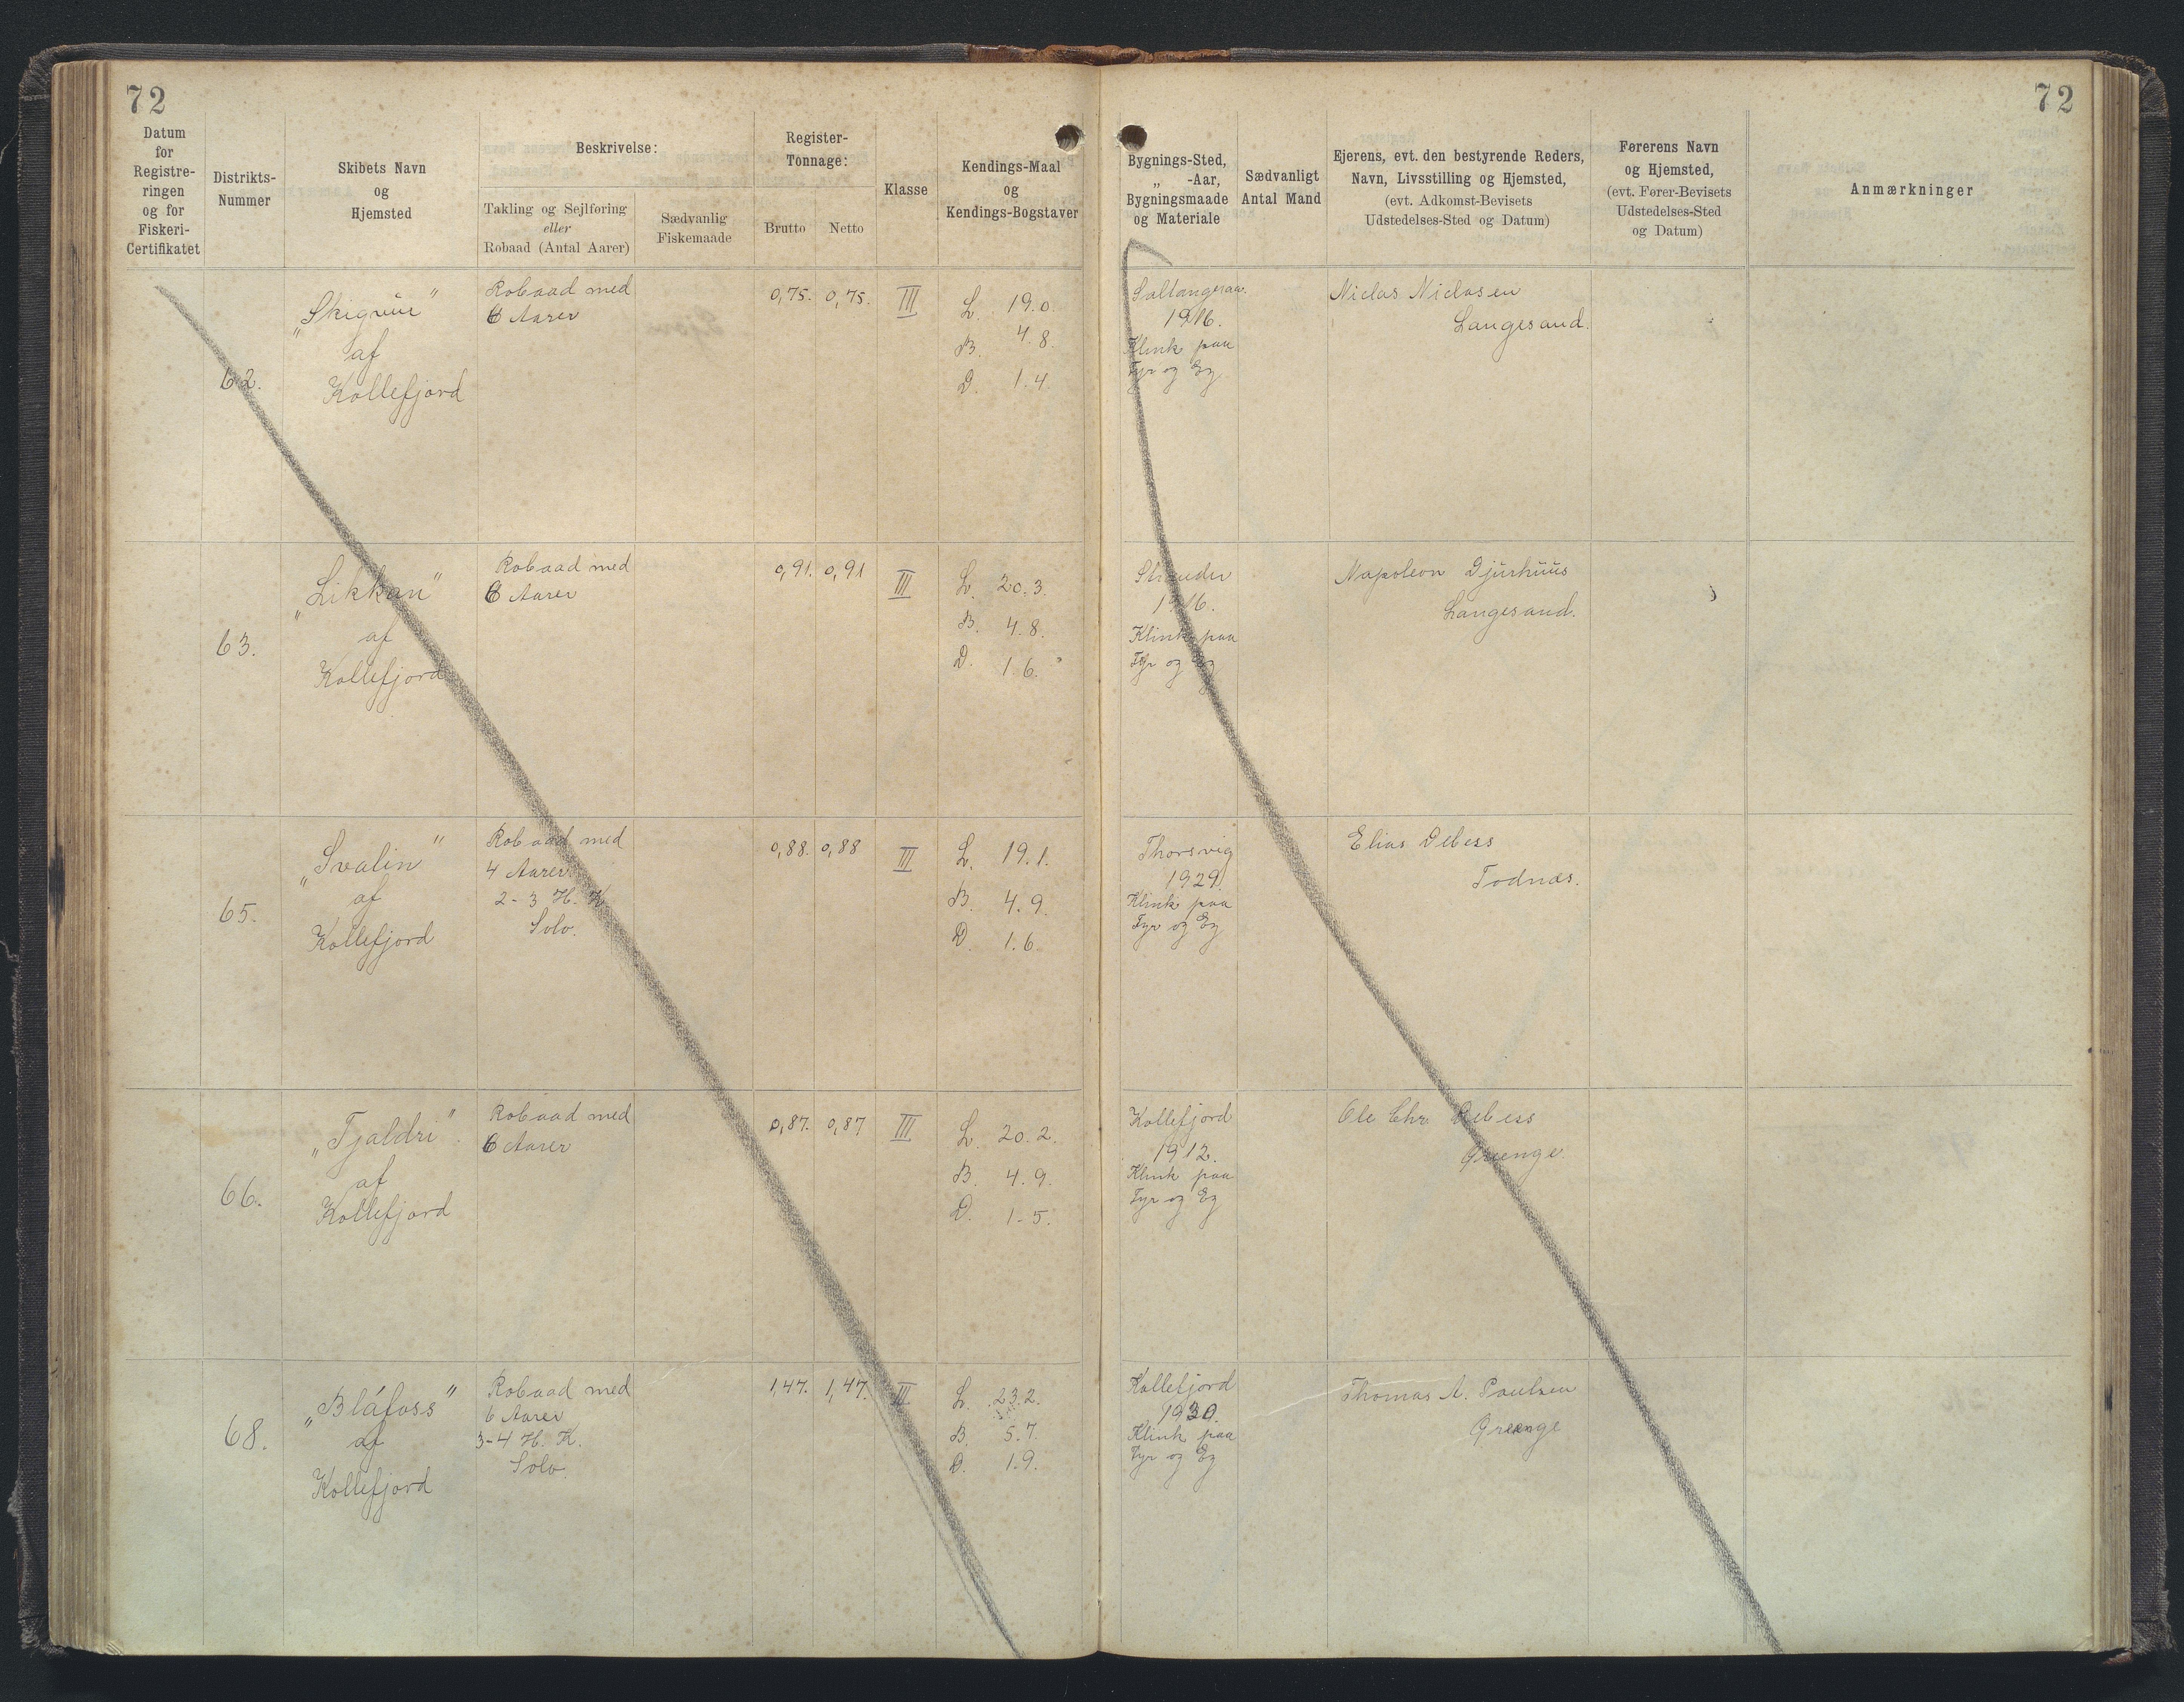 72
72
Datum
for
Registre-
ringen
og for
Fiskeri-
Certifikatet
Distrikts-
Nummer
Skibets Navn
og
Hjemsted
Beskrivelse:
Takling og Sejlføring
eller
Robaad (Antal Aarer)
Sædvanlig
Fiskemaade
Register-
Tonnage:
Brutto
Netto
Klasse
Kendings-Maal
og
Kendings-Bogstaver
Bygnings-Sted,
„ -Aar,
Bygningsmaade
og Materiale
Sædvanligt
Antal Mand
Ejerens, evt. den bestyrende Reders,
Navn, Livsstilling og Hjemsted,
(evt. Adkomst-Bevisets
Udstedelses-Sted og Datum)
Førerens Navn
og Hjemsted,
(evt. Fører-Bevisets
Udstedelses-Sted
og Datum)
Anmærkninger
62.
af
Kollefjord
Robaad med
6 Aarer
0,75. 0,75.
III
L. 19.0.
B. 4.8.
D. 1.4.
1916.
Klink paa
Fyr og Eg
Niclas Niclasen
Langesand.
63.
„Likkan"
af
Kollefjord
Robaad med
6 Aarer
0,91. 0,91
III
L. 20.3.
B. 4.8.
D. 1.6.
1916.
Klink paa
Fyr og Eg
Napoleon Djurhuus
Langesand.
65.
„Svalin"
af
Kollefjord
Robaad med
4 Aarer
2-3 H. K.
Solo.
0,88. 0,88
III
L. 19.1.
B. 4.9.
D. 1.6.
Thorsvig
1929.
Klink paa
Fyr og Eg
Elias Debess
Todnæs.
66.
„Tjaldri".
af
Kollefjord
Robaad med
6 Aarer
0,87. 0,87
III
L. 20.2.
B. 4.9.
D. 1-5.
Kollefjord
1912.
Klink paa
Fyr og Eg
Ole Chr Debess
68.
„Bláfoss"
af
Kollefjord
Robaad med
6 Aarer
3-4 H. K.
Solo.
1,47. 1,47.
III
L. 23.2.
B. 5.7.
D. 1.9.
Kollefjord
1930.
Klink paa
Fyr og Eg
Thomas A. Poulsen